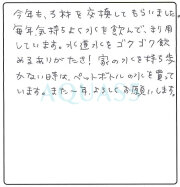 今年も、ろ材を交換してもらいました。
毎年気持ちよく水を飲んで、利用
しています。水道水をゴクゴク飲
めるありがたさ！家の水を持ち歩
かない時は、ペットボトルの水を買って
います。また一年、よろしくお願いします。
AQUASS